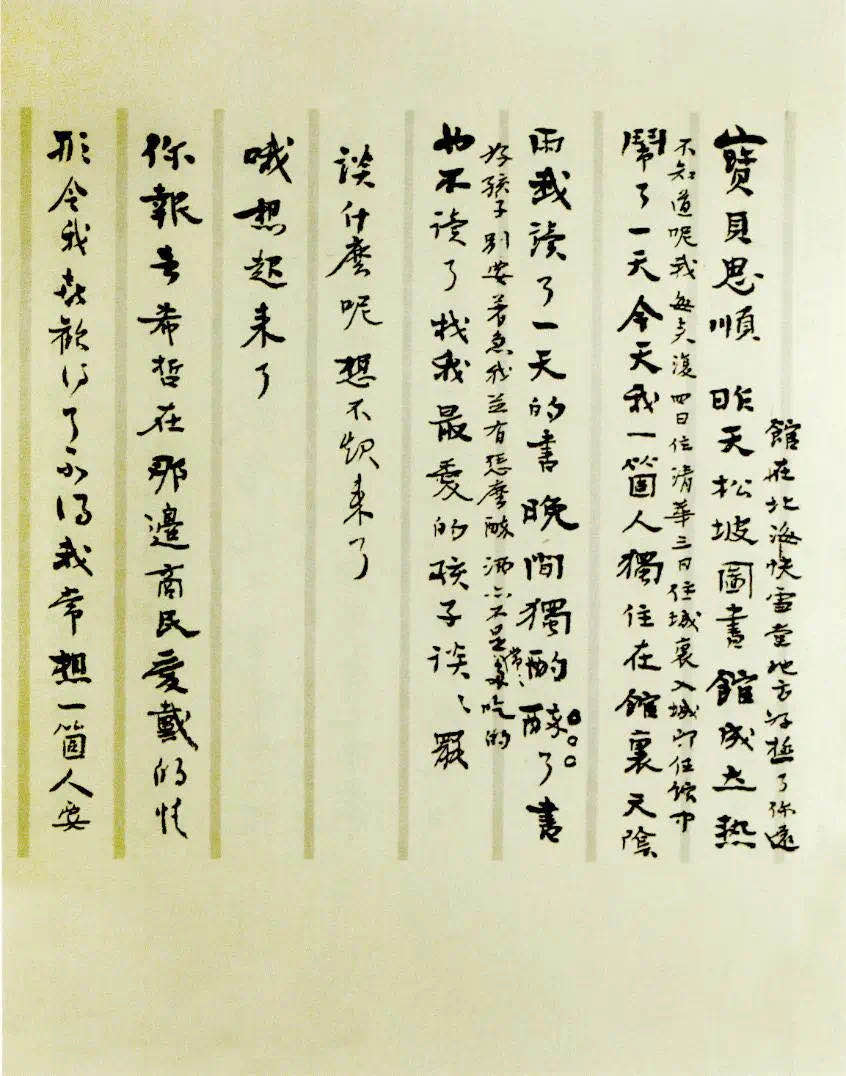 館在北海快雪堂地方好極了你還
寶貝思順 昨天松坡圖書館成立熱
不知道呢我每来復四日住清華三日住城裏入城即住館中
鬧了一天今天我一箇人獨住在館裏天陰
雨我讀了一天的書晚間獨酌醉了書
好孩子別要著急我並冇怎麼醉酒亦不是常〻多吃的
也不讀了找我最愛的孩子談〻罷
談什麼呢想不起来了
哦想起来了
你報告希哲在那邊商民愛戴的情
形令我喜歡得了不得我常想一箇人要